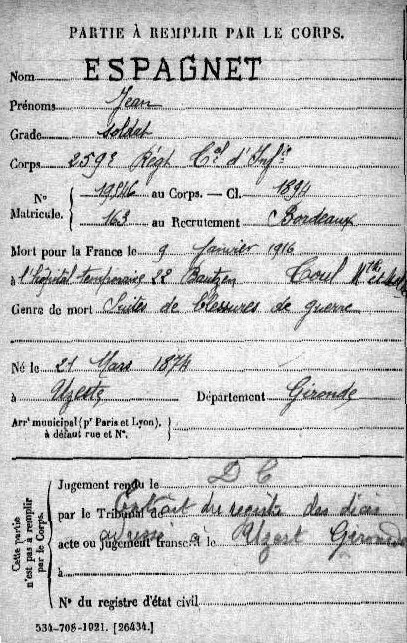 PARTIE À REMPLIR PAR LE CORPS.
Nom ESPAGNET
Prénoms Jean
Grade Soldat
Corps 259e Régt Cal d'Infie
N° Matricule. 19846 au Corps. — Cl. 1894
163 au Recrutement Bordeaux
Mort pour la France le 9 Janvier 1916
à l'hôpital temporaire 22 Bautzen Toul Mthe
Genre de mort Suites de blessures de guerre
Né le 21 Mars 1874
à Uzeste Département Gironde
Arrt municipal (pr Paris et Lyon), à défaut rue et N°.
Cette partie n'est pas à remplir par le Corps.
Jugement rendu le D C
par le Tribunal de Extrait du registre des décès
acte ou jugement transcrit le adressé à Gironde
à
N° du registre d'état civil
534-708-1921. [26434.]